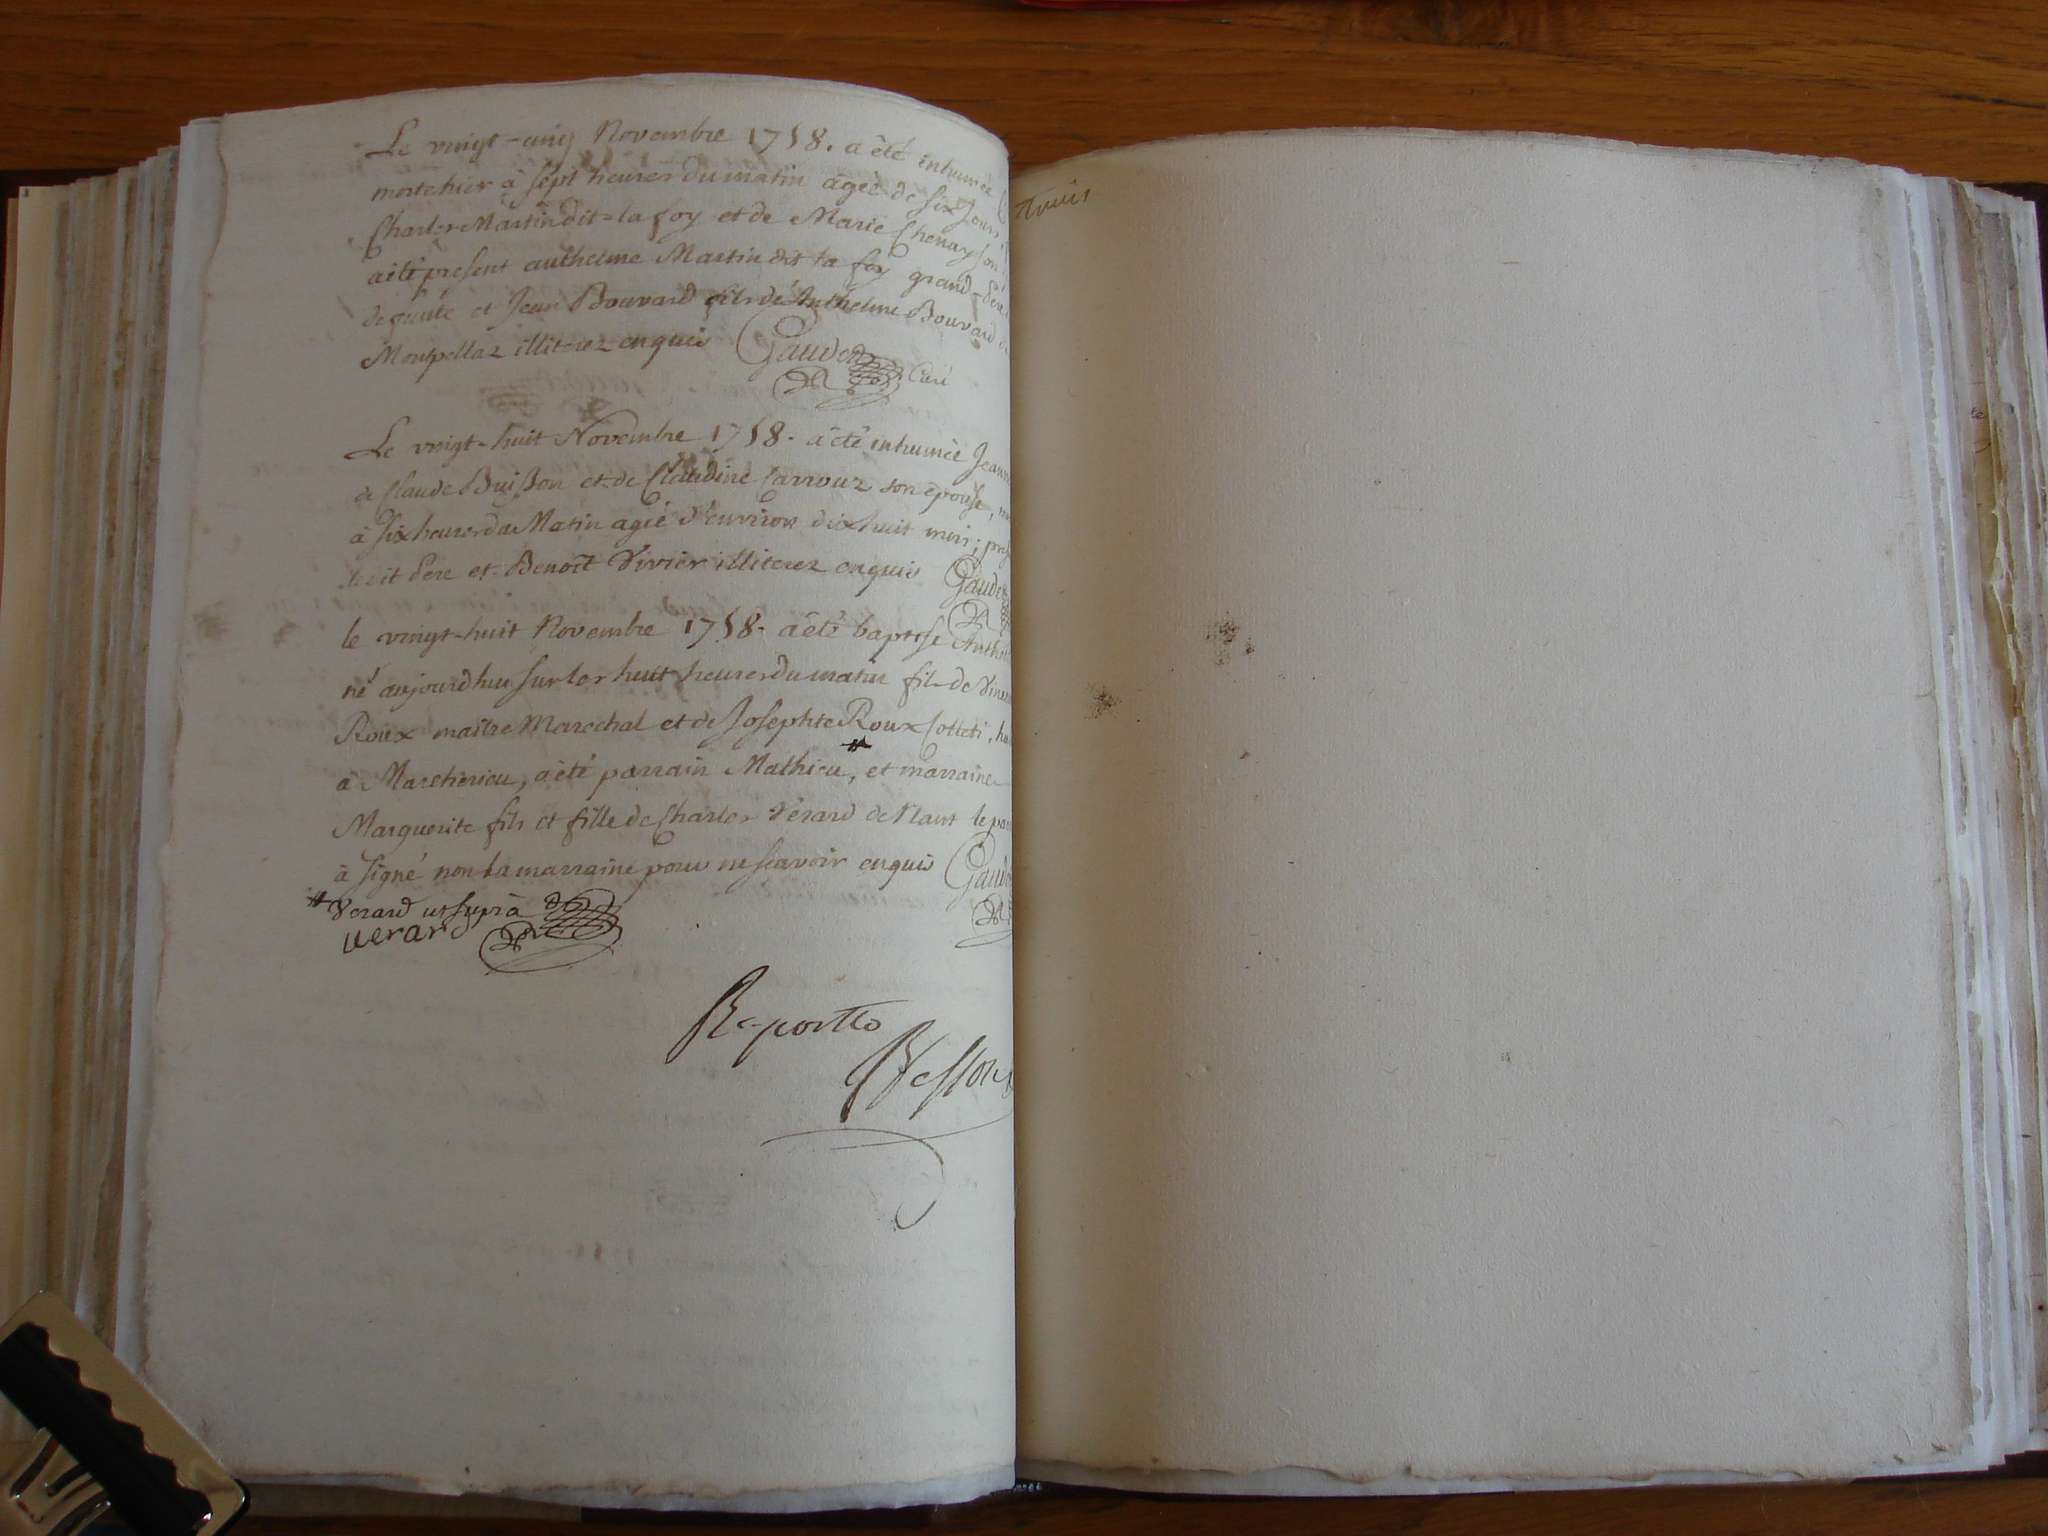 Le vingt-cinq Novembre 1758. a êté inhumée
morte hier à sept heures du matin agée de six Jours
Charles Martin dit-la foy et de Marie Chenay son
a été present anthelme Martin dit la foy grand-Pere
de funte et Jean Bouvard fils de Anthelme Bouvard
Montpellaz illiterez enquis Gaudet Curé
Le vingt-huit Novembre 1758. a êté inhumée Jeanne
de Claude Buisson et de Claudine Carrouz son epouse,
à six heures du Matin agée d'environ dix huit mois;
dit Pere et Benoît Vivier illiterez enquis Gaude
le vingt-huit Novembre 1758. a été baptise Anthe
né aujourdhui sur les huit heures du matin fils de Vincen
Roux maître Marechal et de Josephte Roux Cotteti,
à Marcherieu, a été parrain Mathieu, et marraine
Marguerite fils et fille de Charles Verard de le par
à signé non la marraine pour ne scavoir enquis Gaude
Verard ut supra
verard
Reportto
Besson